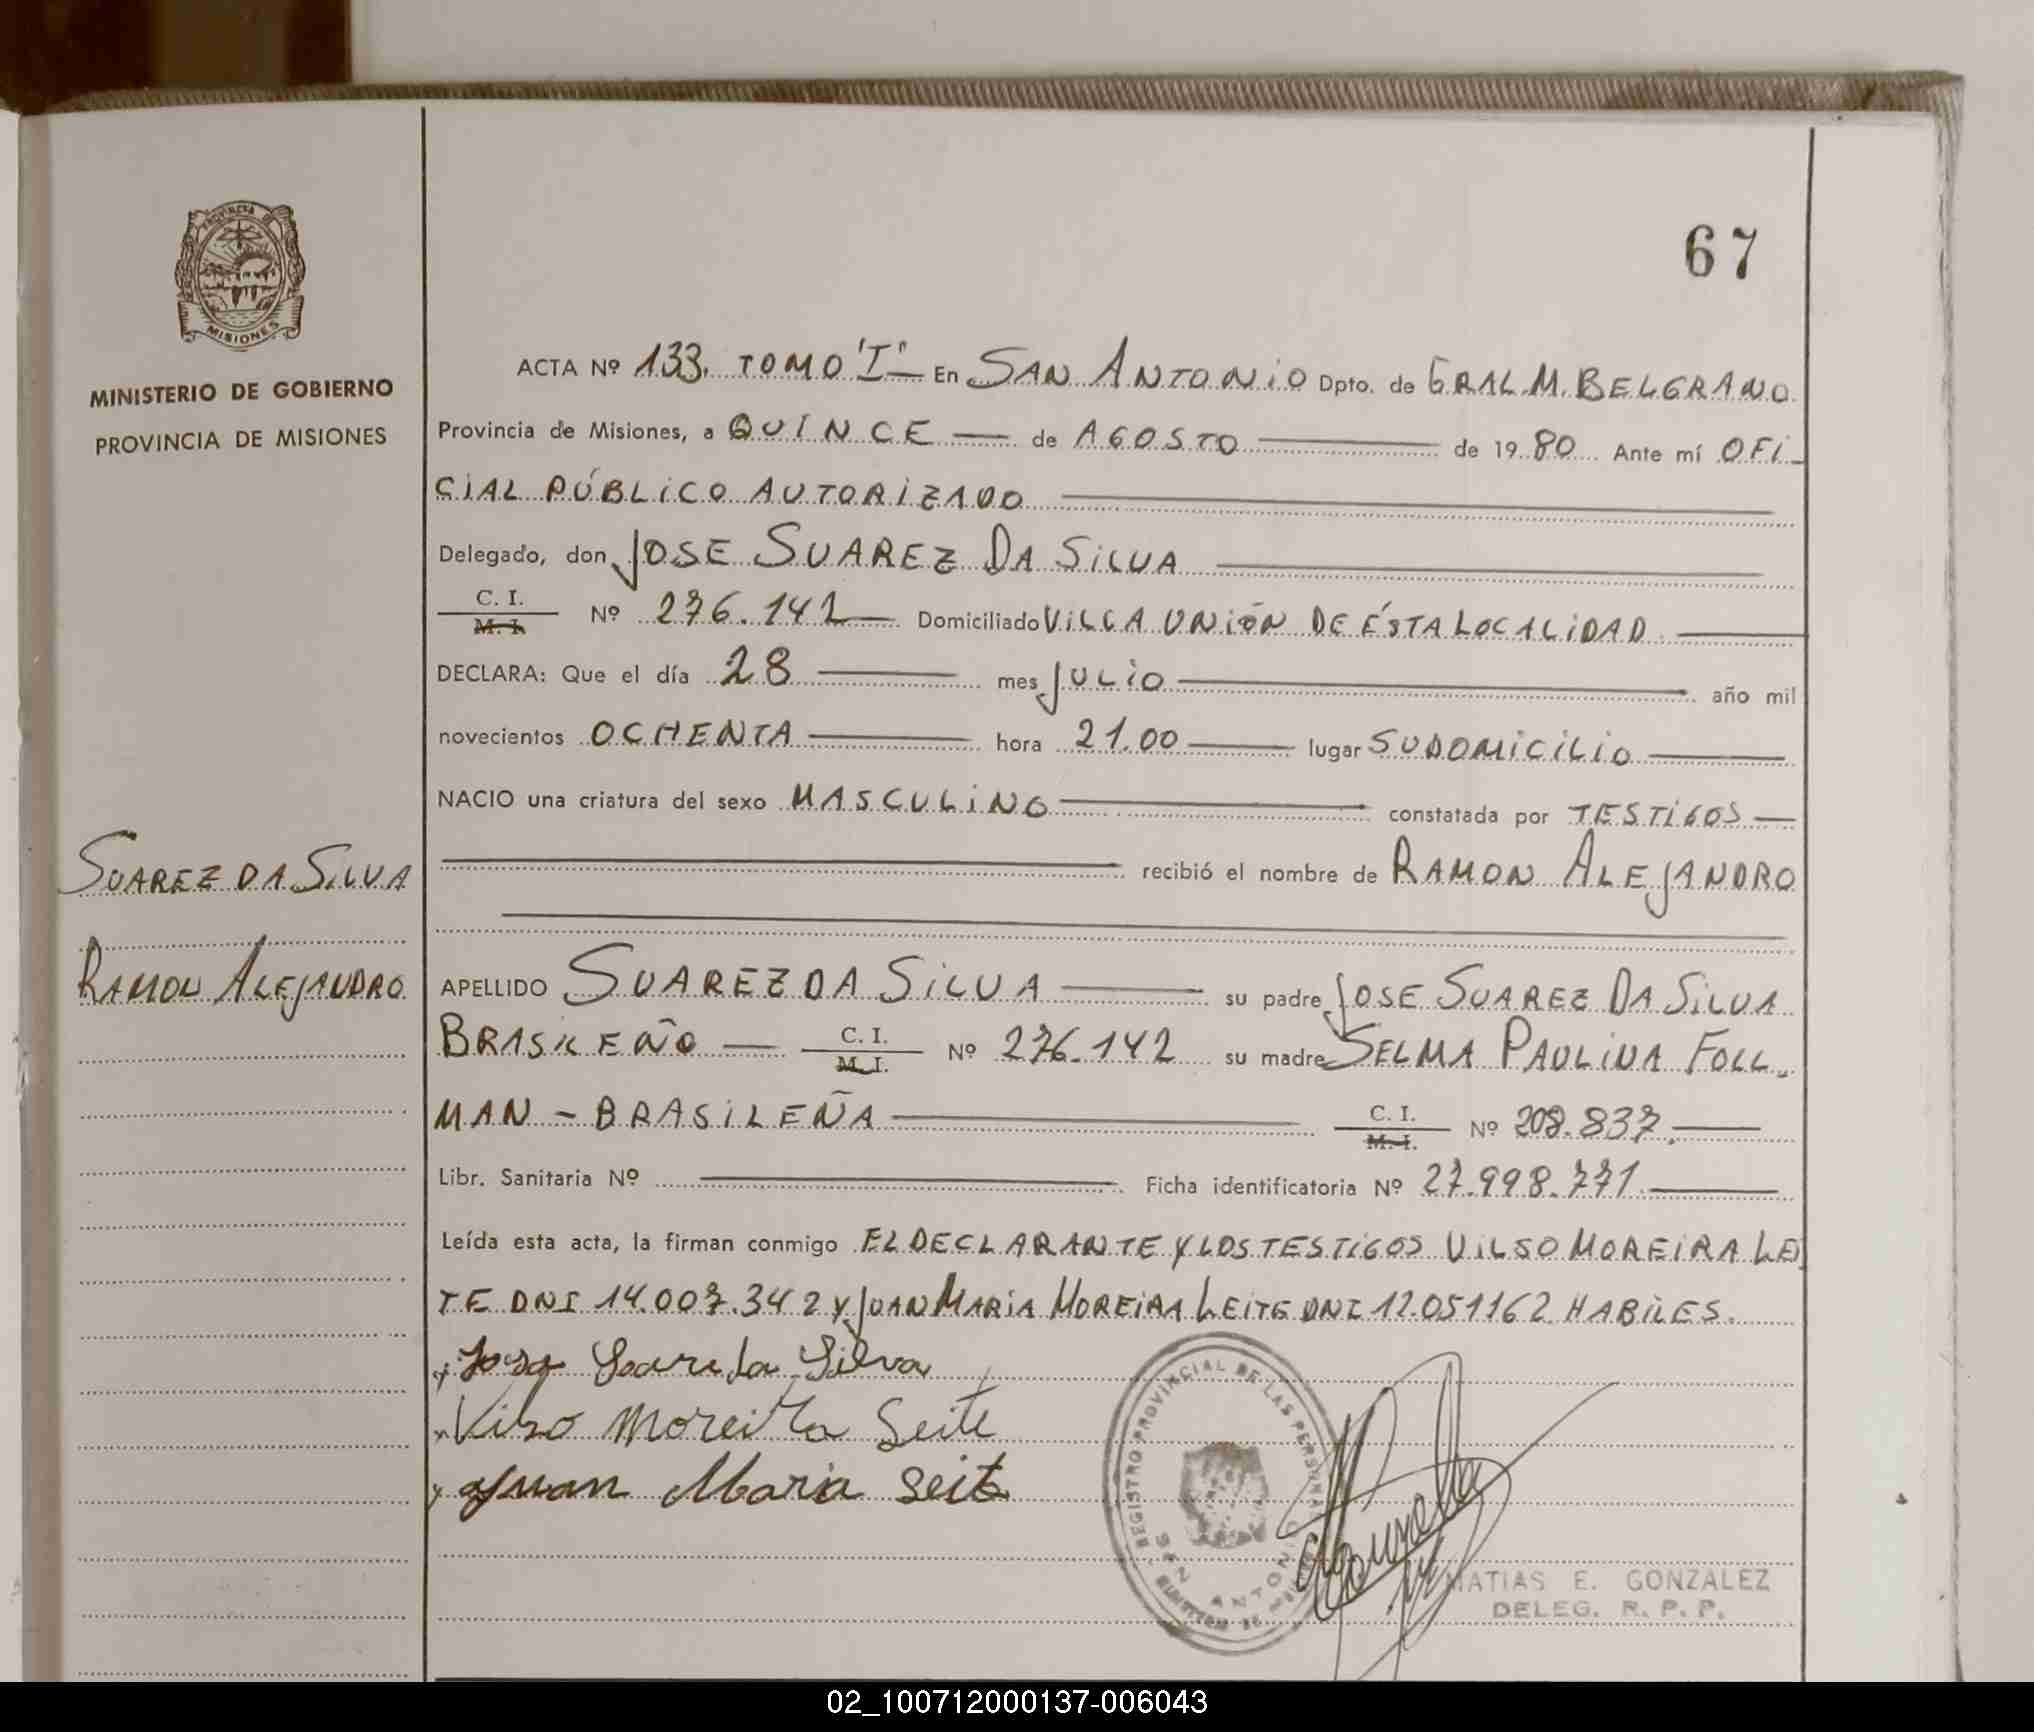 67
PROVINCIA DE
MISIONES
MINISTERIO DE GOBIERNO
PROVINCIA DE MISIONES
SUAREZ DA SILVA
RAMON ALEJANDRO
ACTA Nº 133. TOMO "I" En SAN ANTONIO Dpto. de GRAL. M. BELGRANO.
Provincia de Misiones, a QUINCE — de AGOSTO — de 1980 Ante mí OFI-
CIAL PÚBLICO AUTORIZADO
Delegado, don JOSE SUAREZ DA SILVA
C. I.
M. I. Nº 276.142 — Domiciliado VILLA UNIÓN DE ÉSTA LOCALIDAD
DECLARA: Que el día 28 — mes JULIO — año mil
novecientos OCHENTA — hora 21.00 — lugar SU DOMICILIO —
NACIO una criatura del sexo MASCULINO — constatada por TESTIGOS —
— recibió el nombre de RAMON ALEJANDRO
APELLIDO SUAREZ DA SILVA — su padre JOSE SUAREZ DA SILVA
BRASILEÑO — C. I.
M. I. Nº 276.142 su madre SELMA PAULINA FOLL-
MAN - BRASILEÑA — C. I.
M. I. Nº 208.837. —
Libr. Sanitaria Nº — Ficha identificatoria Nº 27.998.771 —
Leída esta acta, la firman conmigo EL DECLARANTE Y LOS TESTIGOS VILSO MOREIRA LEI
TE DNI 14.007.342 Y JUAN MARIA MOREIRA LEITE DNI 12.051162 HABILES.
da Silva
Vilso Moreira Leite
Juan Maria Leite
REGISTRO PROVINCIAL DE LAS PERSONAS
SAN ANTONIO
MATIAS E. GONZALEZ
DELEG. R. P. P.
02_100712000137-006043